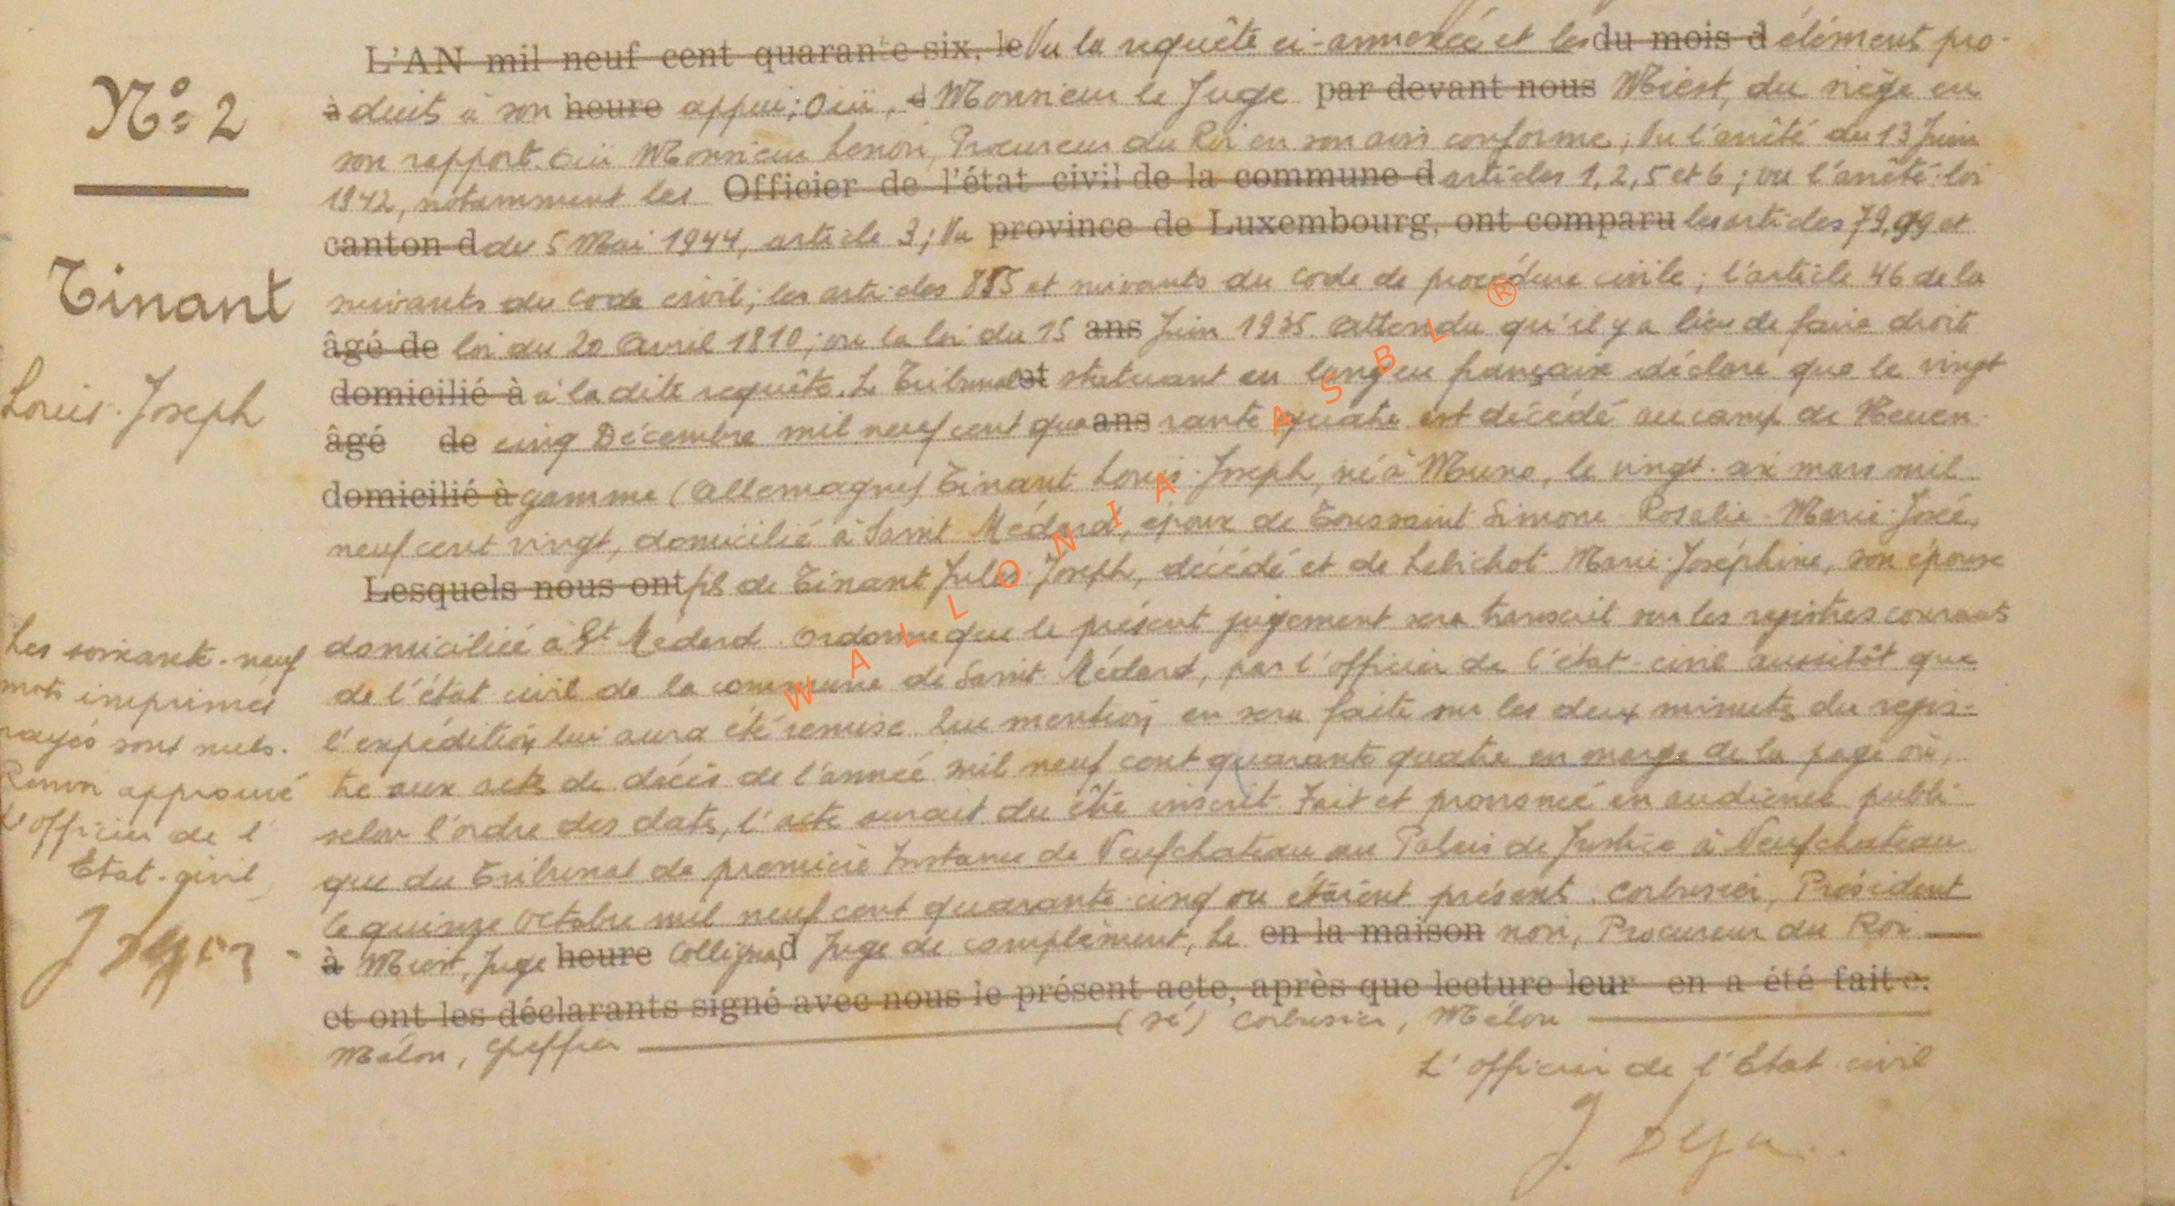 N° 2
Tinant
Louis-Joseph
L'AN mil neuf cent quarante-six, le Vu la requête ci-annexée et les du mois d éléments pro-
à duits à son heure appui; Ouï, d Monsieur le Juge par devant nous Miest, du siège en
son rapport. Ouï Monsieur Lenoir, Procureur du Roi en son avis conforme; Vu l'arrêté du 13 Juin
1942, notamment les Officier de l'état civil de la commune d articles 1, 2, 5 et 6; vu l'arrêté-loi
canton d du 5 Mai 1944, article 3; Vu province de Luxembourg, ont comparu les articles 79, 99 et
suivants du code civil; les articles 855 et suivants du code de procédure civile; l'article 46 de la
âgé de loi du 20 Avril 1810; vu la loi du 15 ans Juin 1935. Attendu qu'il y a lieu de faire droit
domicilié à à la dite requête. Le Tribunal et statuant en langue française déclare que le vingt
âgé de cinq Décembre mil neuf cent qua ans rante quatre est décédé au camp de Neuen
domicilié à gamme (Allemagne) Tinant Louis-Joseph, né à Muno, le vingt-six mars mil
neuf cent vingt, domicilié à Saint Médard, époux de Toussaint Simone Rosalie-Marie-José,
Lesquels nous ont fils de Tinant Jules-Joseph, décédé et de Lelichot Marie-Joséphine, son épouse
domiciliée à St Médard. Ordonne que le présent jugement sera transcrit sur les registres courants
de l'état civil de la commune de Saint Médard, par l'officier de l'état-civil aussitôt que
l'expédition lui aura été remise. Que mention en sera faite sur les deux minutes du regis-
tre aux actes de décès de l'année mil neuf cent quarante quatre en marge de la page où,
selon l'ordre des dates, l'acte aurait du être inscrit. Fait et prononcé en audience publi-
que du Tribunal de première Instance de Neufchateau au Palais de Justice à Neufchateau
le quinze octobre mil neuf cent quarante-cinq où étaient présents. Corbusier, Président
à Miest, Juge heure Collignon, d Juge de complément, Le en la maison noir, Procureur du Roi
et ont les déclarants signé avec nous le présent acte, après que lecture leur en a été faite.
(sé) Corbusier, Mélon
Mélon, Greffier
L'officier de l'Etat civil
Les soixante-neuf
mots imprimés
rayés sont nuls.
Renvoi approuvé
L'officier de l'
Etat-civil
WALLONIA ASBL ®